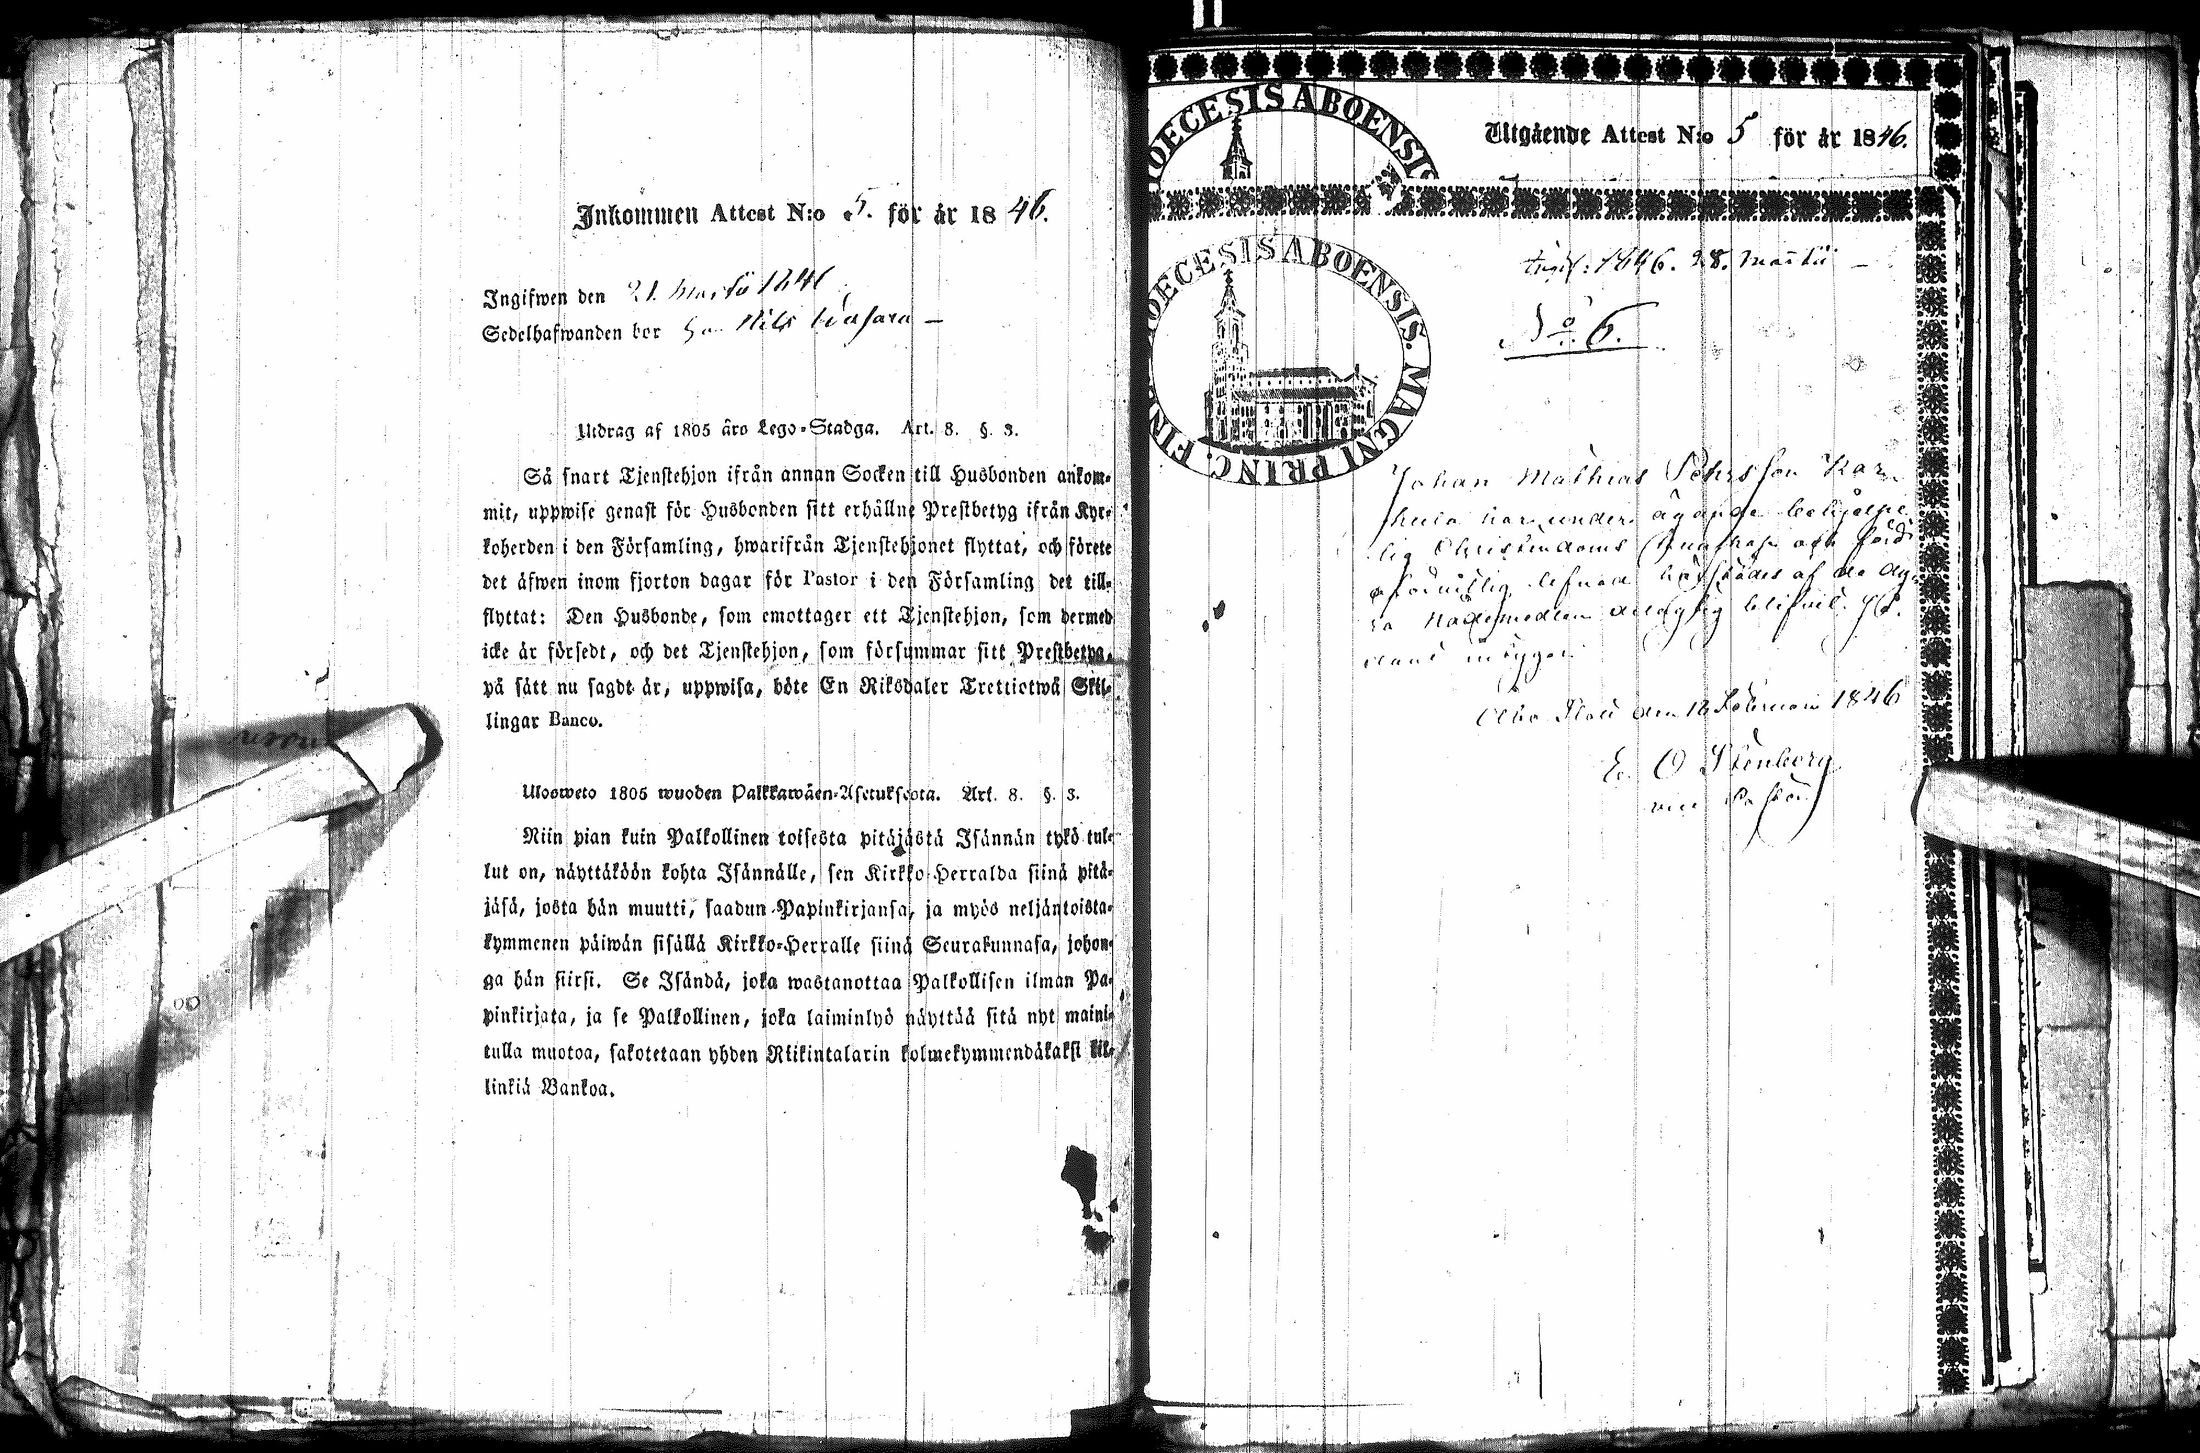 Inkommen Attest N:o 5. för år 1846.
Ingifwen den 21. Martii 1846
Sedelhafwanden bor Nils Wasara —
Utdrag af 1805 års Lego-Stadga. Art. 8. §. 3.
Så snart Tjenstehjon ifrån annan Socken till Husbonden ankom-
mit, uppwise genast för Husbonden sitt erhållne Prestbetyg ifrån Kyr-
koherden i den Församling, hwarifrån Tjenstehjonet flyttat, och förete
det äfwen inom fjorton dagar för Pastor i den Församling det till-
flyttat: Den Husbonde, som emottager ett Tjenstehjon, som dermed
icke är försedt, och det Tjenstehjon, som försummar sitt Prestbetyg,
på sätt nu sagdt är, uppwisa, böte En Riksdaler Trettiotwå Skil-
lingar Banco.
Ulosweto 1805 wuoden Palkkawäen-Asetuksesta. Art. 8. §. 3.
Niin pian kuin Palkollinen toisesta pitäjästä Isännän tykö tul-
lut on, näyttäköön kohta Isännälle, sen Kirkko-Herralda siinä pitä-
jäsä, josta hän muutti, saadun Papinkirjansa, ja myös neljäntoista-
kymmenen päiwän sisällä Kirkko-Herralle siinä Seurakunnasa, johon-
ga hän siirsi. Se Isändä, joka wastanottaa Palkollisen ilman Pa-
pinkirjata, ja se Palkollinen, joka laiminlyö näyttää sitä nyt maini-
tulla muotoa, sakotetaan yhden Riikintalarin kolmekymmendäkaksi kil-
linkiä Bankoa.
DIOECESIS ABOENSIS
Utgående Attest N:o 5 för år 1846.
DIOECESIS ABOENSIS. MAGNI PRINC. FIN
1846. 28. Martii —
No. 6.
Johan Mathias Pehrsson Kar
har under ägande behjelpe
lig Christendoms kunskap och
oförwitlig lefnad af de dy
ra Nådemedlen delagtig blifvit.
den 18 Februari 1846
E. O Stenberg
vice Pastor